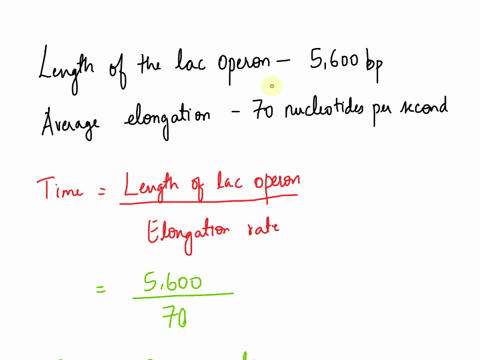 Length of the lac operon - 5,600 bp
Average elongation - 70 nucleotides per second
Time = Length of lac operon
Elongation rate
= 5,600
70